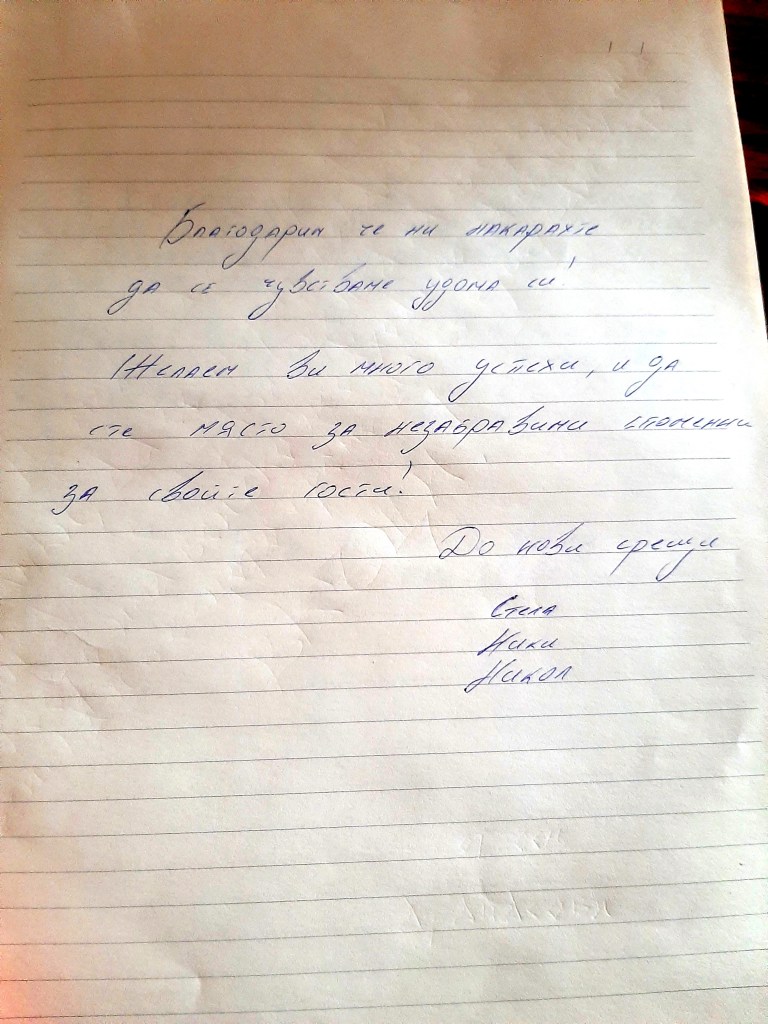 Благодарим че ни накарахте
да се чувстваме удома си!
Желаем ви много успехи, и да
сте място за незабравими спомени
за свойте гости!
До нови срещи
Стела
Ники
Никол